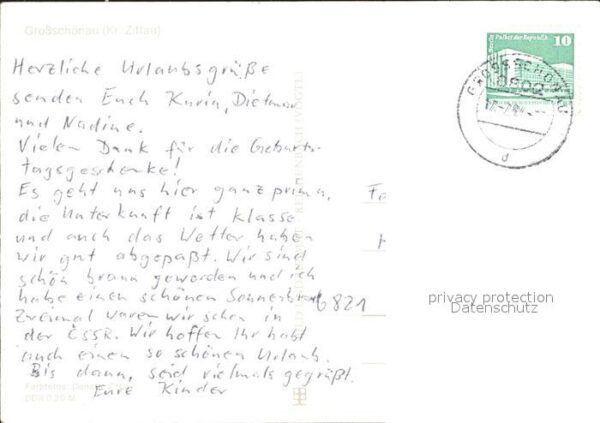 Großschönau (Kr. Zittau)
Herzliche Urlaubsgrüße
senden Euch Karin, Dietmar
und Nadine.
Vielen Dank für die Geburts-
tagsgeschenke!
Es geht uns hier ganz prima,
die Unterkunft ist klasse
und auch das Wetter haben
wir gut abgepaßt. Wir sind
schön braun geworden und ich
habe einen schönen Sonnenbrand
Zweimal waren wir schon in
der ČSSR. Wir hoffen Ihr habt
auch einen so schönen Urlaub.
Bis dann, seid vielmals gegrüßt.
Eure Kinder
Farbfotos:
DDR 0,20 M
Berlin Palast der Republik
10
GROSSSCHÖNAU
8802
d
6821
privacy protection
Datenschutz